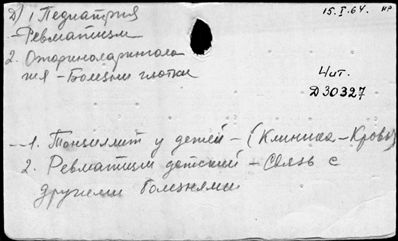 Д) 1. Педиатрия
15.I.64. нр
-Ревматизм
2. Оториноларинголо
гия - Болезни глотки
Чит.
Д30327
--1. Тонзиллит у детей - (Клиника - Кровь)
2. Ревматизм детский - Связь с
другими болезнями